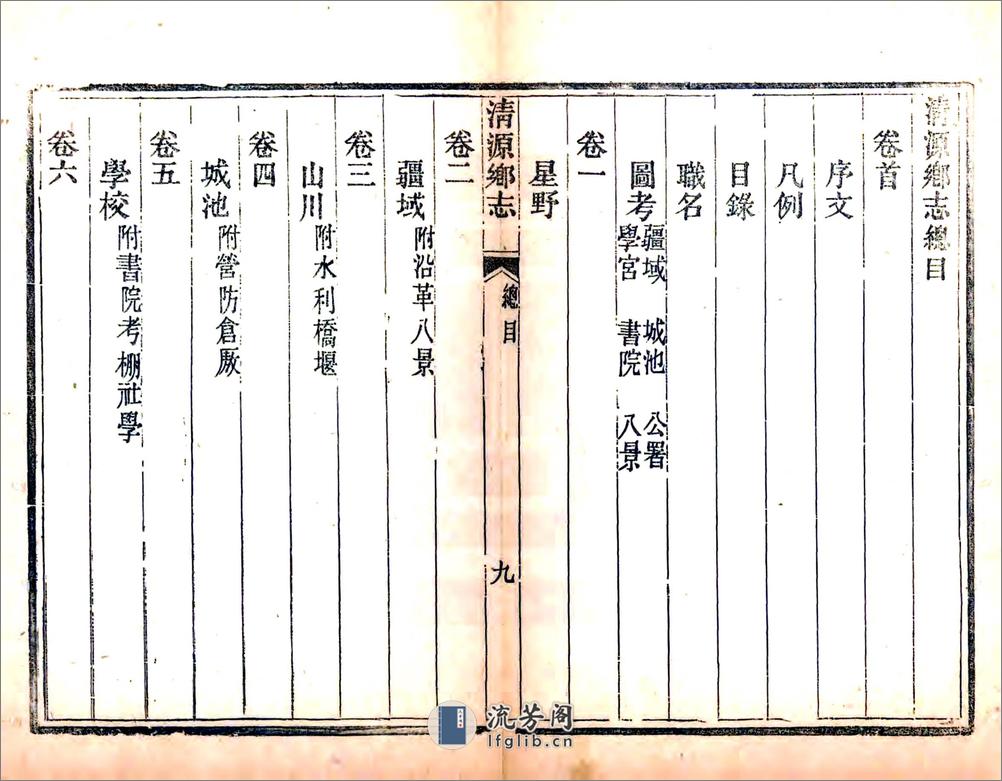 清源鄉志總目
卷首
序文
凡例
目錄
職名
圖考 疆域 城池 公署
學宮 書院 八景
卷一
星野
清源鄉志 總目 九
卷二
疆域 附沿革八景
卷三
山川 附水利橋堰
卷四
城池 附營防倉厫
卷五
學校 附書院考棚社學
卷六
流芳阁
lfglib.cn